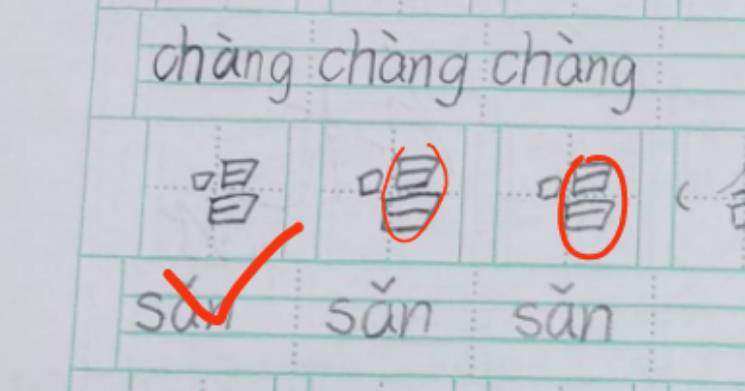 chàng chàng chàng
唱 唱 唱
sǎn sǎn sǎn